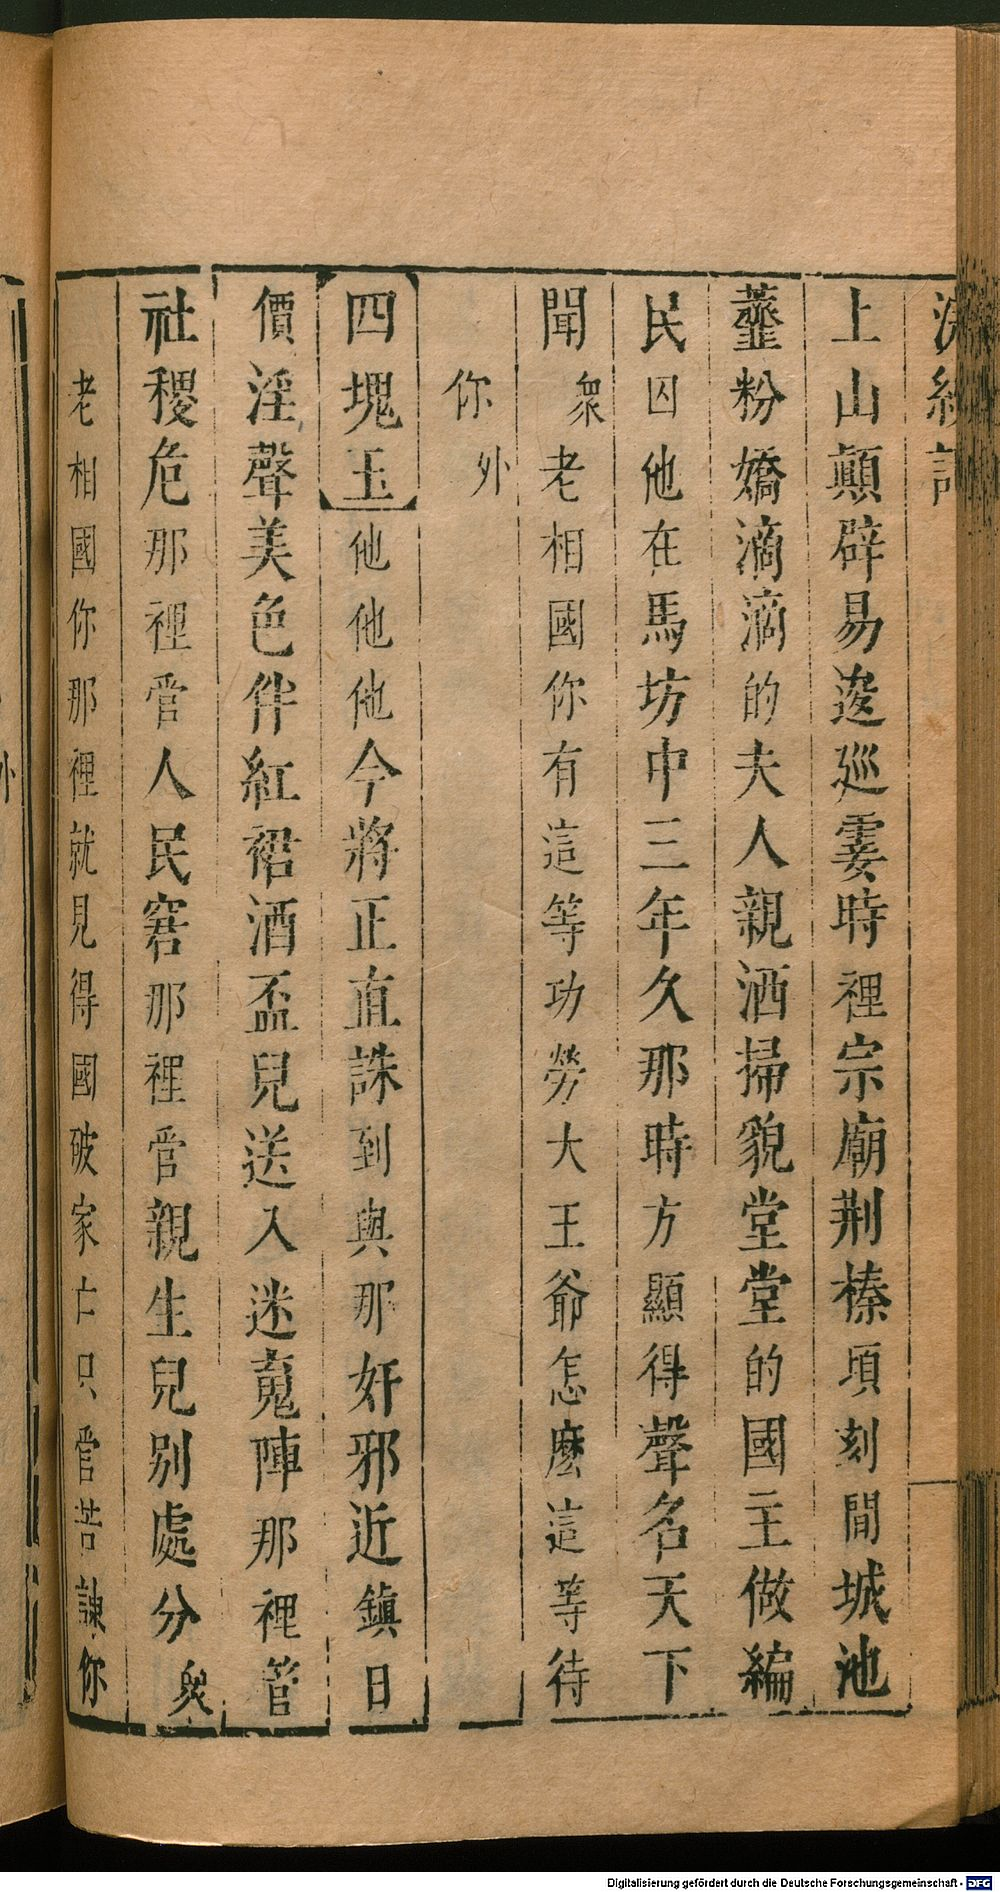 浣紗記
上山顛辟易逡巡霎時裡宗廟荆榛項刻間城池
虀粉嬌滴滴的夫人親洒掃貌堂堂的國主做編
民囚他在馬坊中三年久那時方顯得聲名天下
聞衆老相國你有這等功勞大王爺怎麽這等待
你外
四塊玉他他他今將正直誅到與那奸邪近鎮日
價淫聲美色伴紅裙酒盃兒送入迷䰟陣那裡管
社稷危那裡管人民窘那裡管親生兒別處分衆
老相國你那裡就見得國破家亡只管苦諫你
外
Digitalisierung gefördert durch die Deutsche Forschungsgemeinschaft - DFG